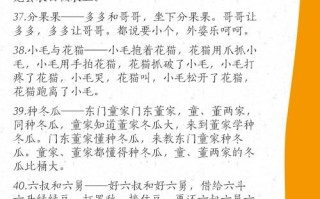 37.分果果——多多和哥哥，坐下分果果。哥哥让
多多，多多让哥哥。都说要小个，外婆乐呵呵。
38.小毛与花猫——小毛抱着花猫，花猫用爪抓小
毛，小毛用手拍花猫，花猫抓破了小毛，小毛打
疼了花猫，小毛哭，花猫叫，小毛松开了花猫，花
猫跑离了小毛。
39.种冬瓜——东门童家门东董家，童、董两家，
同种冬瓜，童家知道董家冬瓜大，来到董家学种
冬瓜。门东董家懂种冬瓜，来教东门童家种冬
瓜。童家、董家都懂得种冬瓜，童、董两家的冬
瓜比桶大。
40.六叔和六舅——好六叔和好六舅，借给六斗